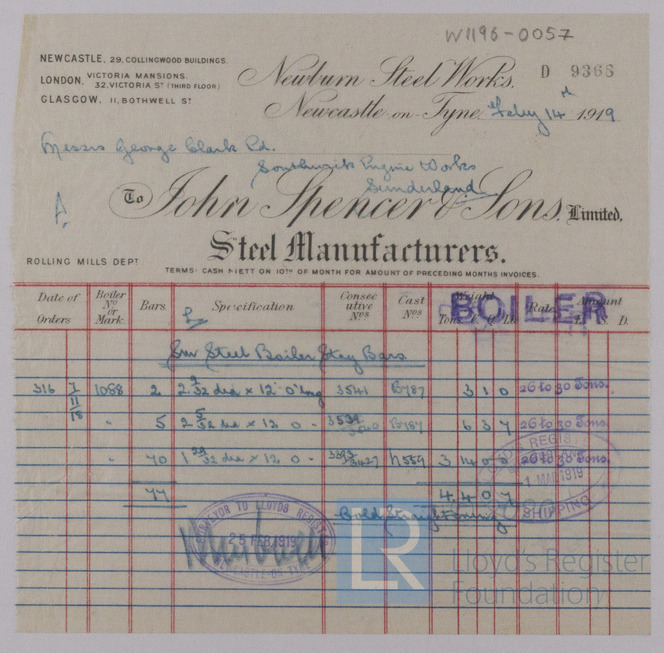 W1196-0057
NEWCASTLE, 29, COLLINGWOOD BUILDINGS.
LONDON, VICTORIA MANSIONS,
32, VICTORIA ST (THIRD FLOOR)
GLASGOW, 11, BOTHWELL ST
Newburn Steel Works, D 9366
Newcastle-on-Tyne, Feby 14th 1919
Messrs George Clark Ld.
Southwick Engine Works
Sunderland
To John Spencer & Sons, Limited,
Steel Manufacturers.
ROLLING MILLS DEPT
TERMS: CASH NETT ON 10TH OF MONTH FOR AMOUNT OF PRECEDING MONTHS INVOICES.
Date of Orders Boiler No or Mark Bars Specification Consecutive Nos Cast Nos Weight Tons. C. Q. Lb. Rate Amount £. S. D.
BOILER
Steel Boiler Stay Bars
316 7/11/18 1088 2 2 9/32 dia x 12' 0" long 3541 B787 3 1 0 26 to 30 Tons.
" 5 2 5/32 dia x 12 0 - 3539 3540 B787 6 3 7 26 to 30 Tons.
" 70 1 29/32 dia x 12 0 - N559 3 14 0 0 26 to 30 Tons.
77 4. 4 0 7
LLOYDS REGISTER
1 MAR 1919
SHIPPING
SURVEYOR TO LLOYDS REGISTER
25 FEB 1919
NEWCASTLE-ON-TYNE
LR
Lloyd's Register
Foundation